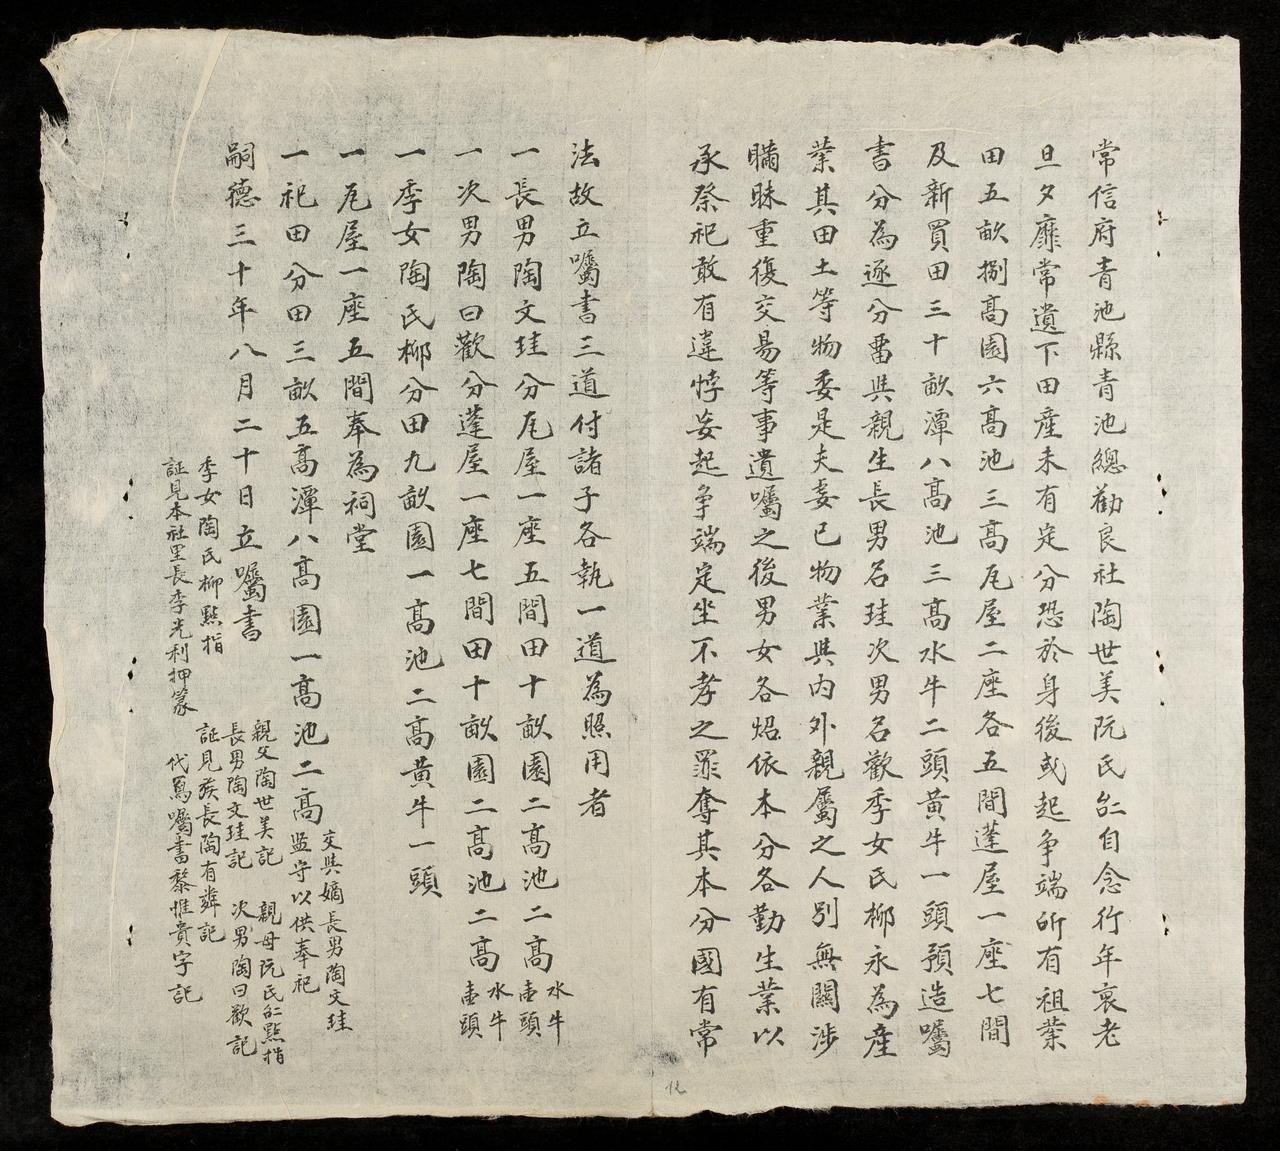 常信府青池縣青池總勸良社陶世美阮氏㐌自念行年衰老
旦夕靡常遺下田產未有定分恐於身後或起争端所有祖業
田五畝捌高園六高池三高瓦屋二座各五間蓬屋一座七間
及新買田三十畝潭八高池三高水牛二頭黄牛一頭預造囑
書分為逐分畱與親生長男名珪次男名歡季女氏柳永為產
業其田土等物委是夫妻已物業與内外親屬之人别無關涉
瞞昧重復交易等事遺囑之後男女各炤依本分各勤生業以
承祭祀敢有違悖妄起争端定坐不孝之罪奪其本分國有常
法故立囑書三道付諸子各執一道為照用者
一長男陶文珪分瓦屋一座五間田十畝園二高池二高水牛壹頭
一次男陶曰歡分蓬屋一座七間田十畝園二高池二高水牛壹頭
一季女陶氏柳分田九畝園一高池二高黄牛一頭
一瓦屋一座五間奉為祠堂
一祀田分田三畝五高潭八高園一高池二高交與嫡長男陶文珪監守以供奉祀
嗣德三十年八月二十日立囑書
親父陶世美記 親母阮氏㐌點指
長男陶文珪記 次男陶曰歡記
季女陶氏柳點指 証見族長陶有舜記
証見本社里長李光利押篆 代寫囑書黎惟貴字記
12